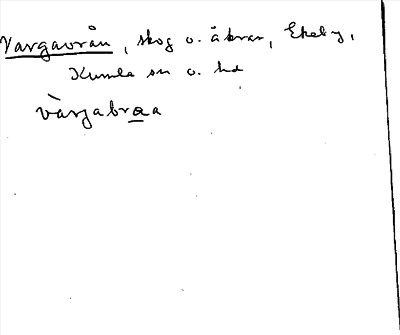 Vargavrån, skog o. åkrar, Ekeby,
Kumla sn o. hd
vàrgabraa